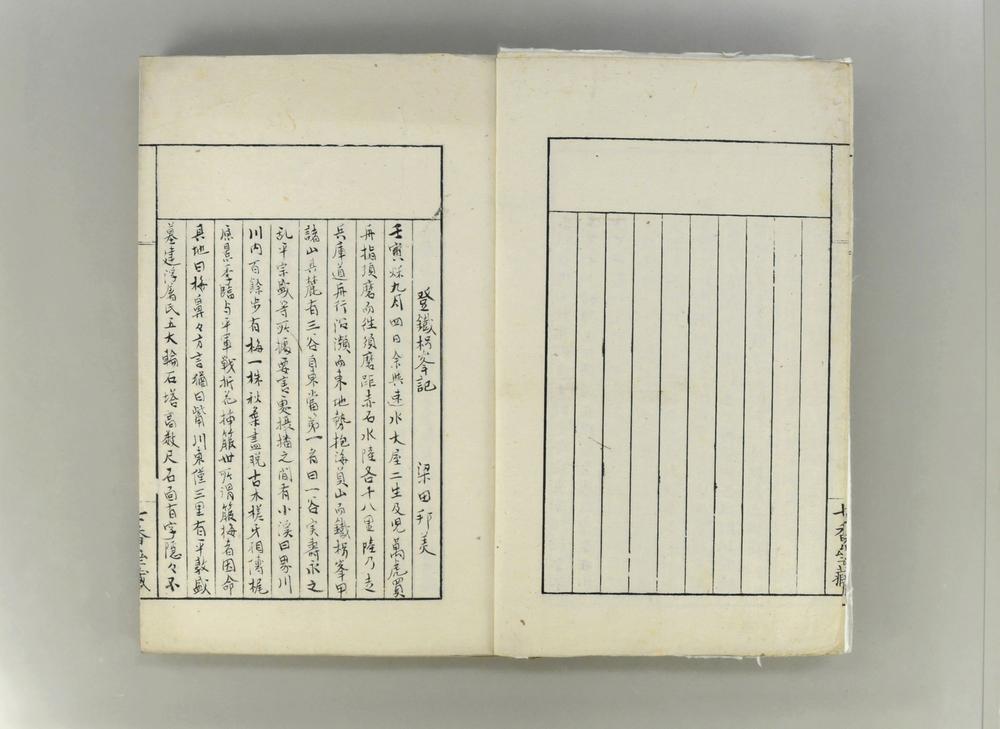 登鐵枴峯記　梁田邦美
壬寅秌九月四日余與速水大屋二生及児萬虎買
舟指須磨而徃須磨距赤石水陸各十八里陸乃走
兵庫道舟行沿瀬而東地勢抱海負山而鐵枴峯甲
諸山其麓有三谷自東當第一者曰一谷実壽永之
乱平宗盛等所據要害處摂播之間有小溪曰界川
川内百餘歩有梅一株秋葉盡脱古木槎牙相傳梶
原景季臨与平軍戦折花挿箙世所謂箙梅者因命
其地曰梅鼻々方言猶曰觜川東僅三里有平敦盛
墓建浮屠氏五大輪石塔高数尺石面有字隠々不
七香
七香